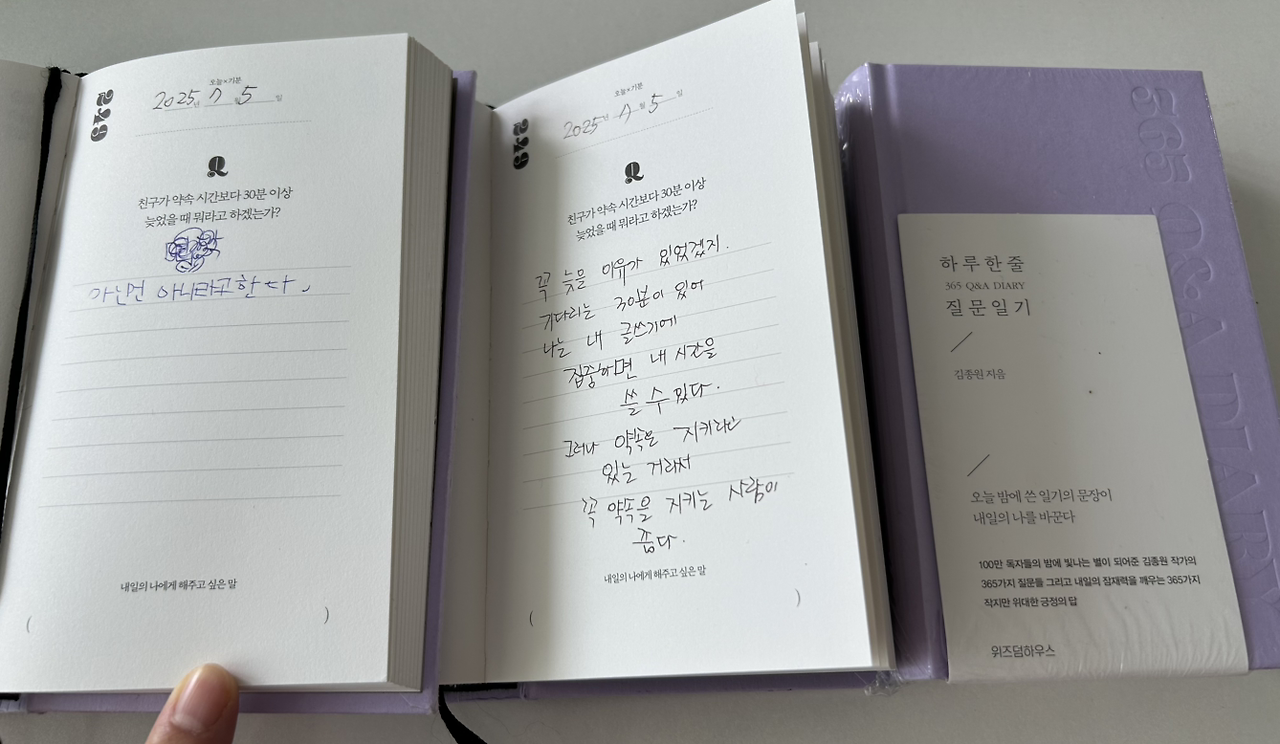 249
오늘×기분
2025년 7월 5일
Q
친구가 약속 시간보다 30분 이상
늦었을 때 뭐라고 하겠는가?
아닌먼 아니라고한다.
내일의 나에게 해주고 싶은 말
( )
249
오늘×기분
2025년 7월 5일
Q
친구가 약속 시간보다 30분 이상
늦었을 때 뭐라고 하겠는가?
꼭 늦을 이유가 있었겠지.
기다리는 30분이 있어
나는 내 글쓰기에
집중하면 내 시간을
쓸 수 있다.
그러나 약속은 지키라고
있는 거라서
꼭 약속을 지키는 사람이
좋다.
내일의 나에게 해주고 싶은 말
( )
365 Q&A DIARY
하루 한 줄
365 Q&A DIARY
질문 일기
김종원 지음
오늘 밤에 쓴 일기의 문장이
내일의 나를 바꾼다
100만 독자들의 밤에 빛나는 별이 되어준 김종원 작가의
365가지 질문들 그리고 내일의 잠재력을 깨우는 365가지
작지만 위대한 긍정의 답
위즈덤하우스